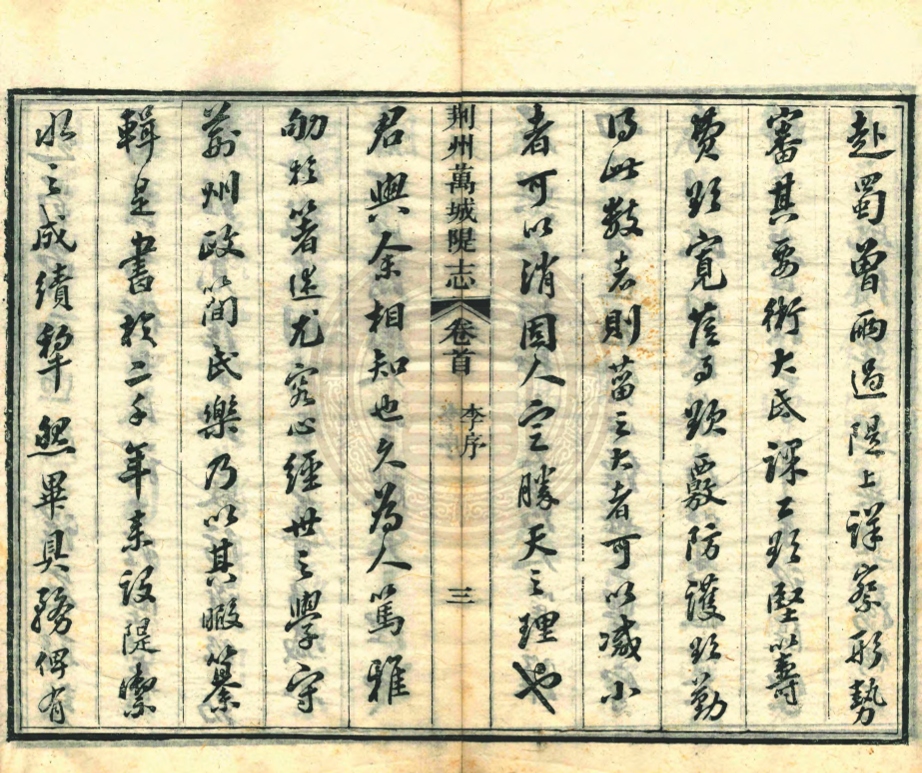 赴蜀曾兩過隄上詳察形勢
審其要術大氐課工須堅籌
費須寬須覈防護須勤
得此數者則菑之大者可以減小
者可以消固人定勝天之理也
荆州萬城隄志 卷首 李序 三
君與余相知也久為人篤雅
劬於著述尤究心經世之學守
荊州政簡民樂乃以其暇纂
輯是書於二千年來設隄禦
水之成績犖然畢具務俾有